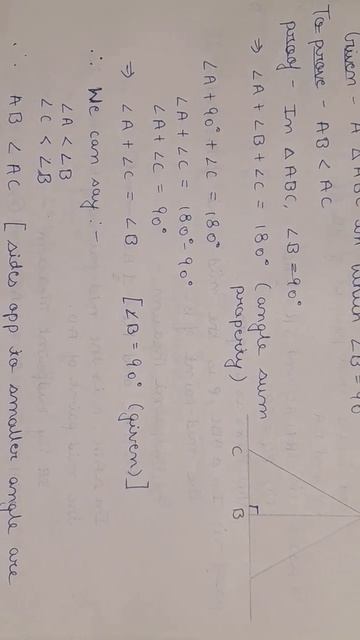 Given - A △AB in which ∠B = 90
To prove - AB < AC
proof - In △ABC, ∠B = 90°
⇒ ∠A + ∠B + ∠C = 180° (angle sum
property)
∠A + 90° + ∠C = 180°
∠A + ∠C = 180° - 90°
∠A + ∠C = 90°
⇒ ∠A + ∠C = ∠B [∠B = 90° (given)]
∴ We can say :-
∠A < ∠B
∠C < ∠B
∴ AB < AC [sides opp to smaller angle are
C
B